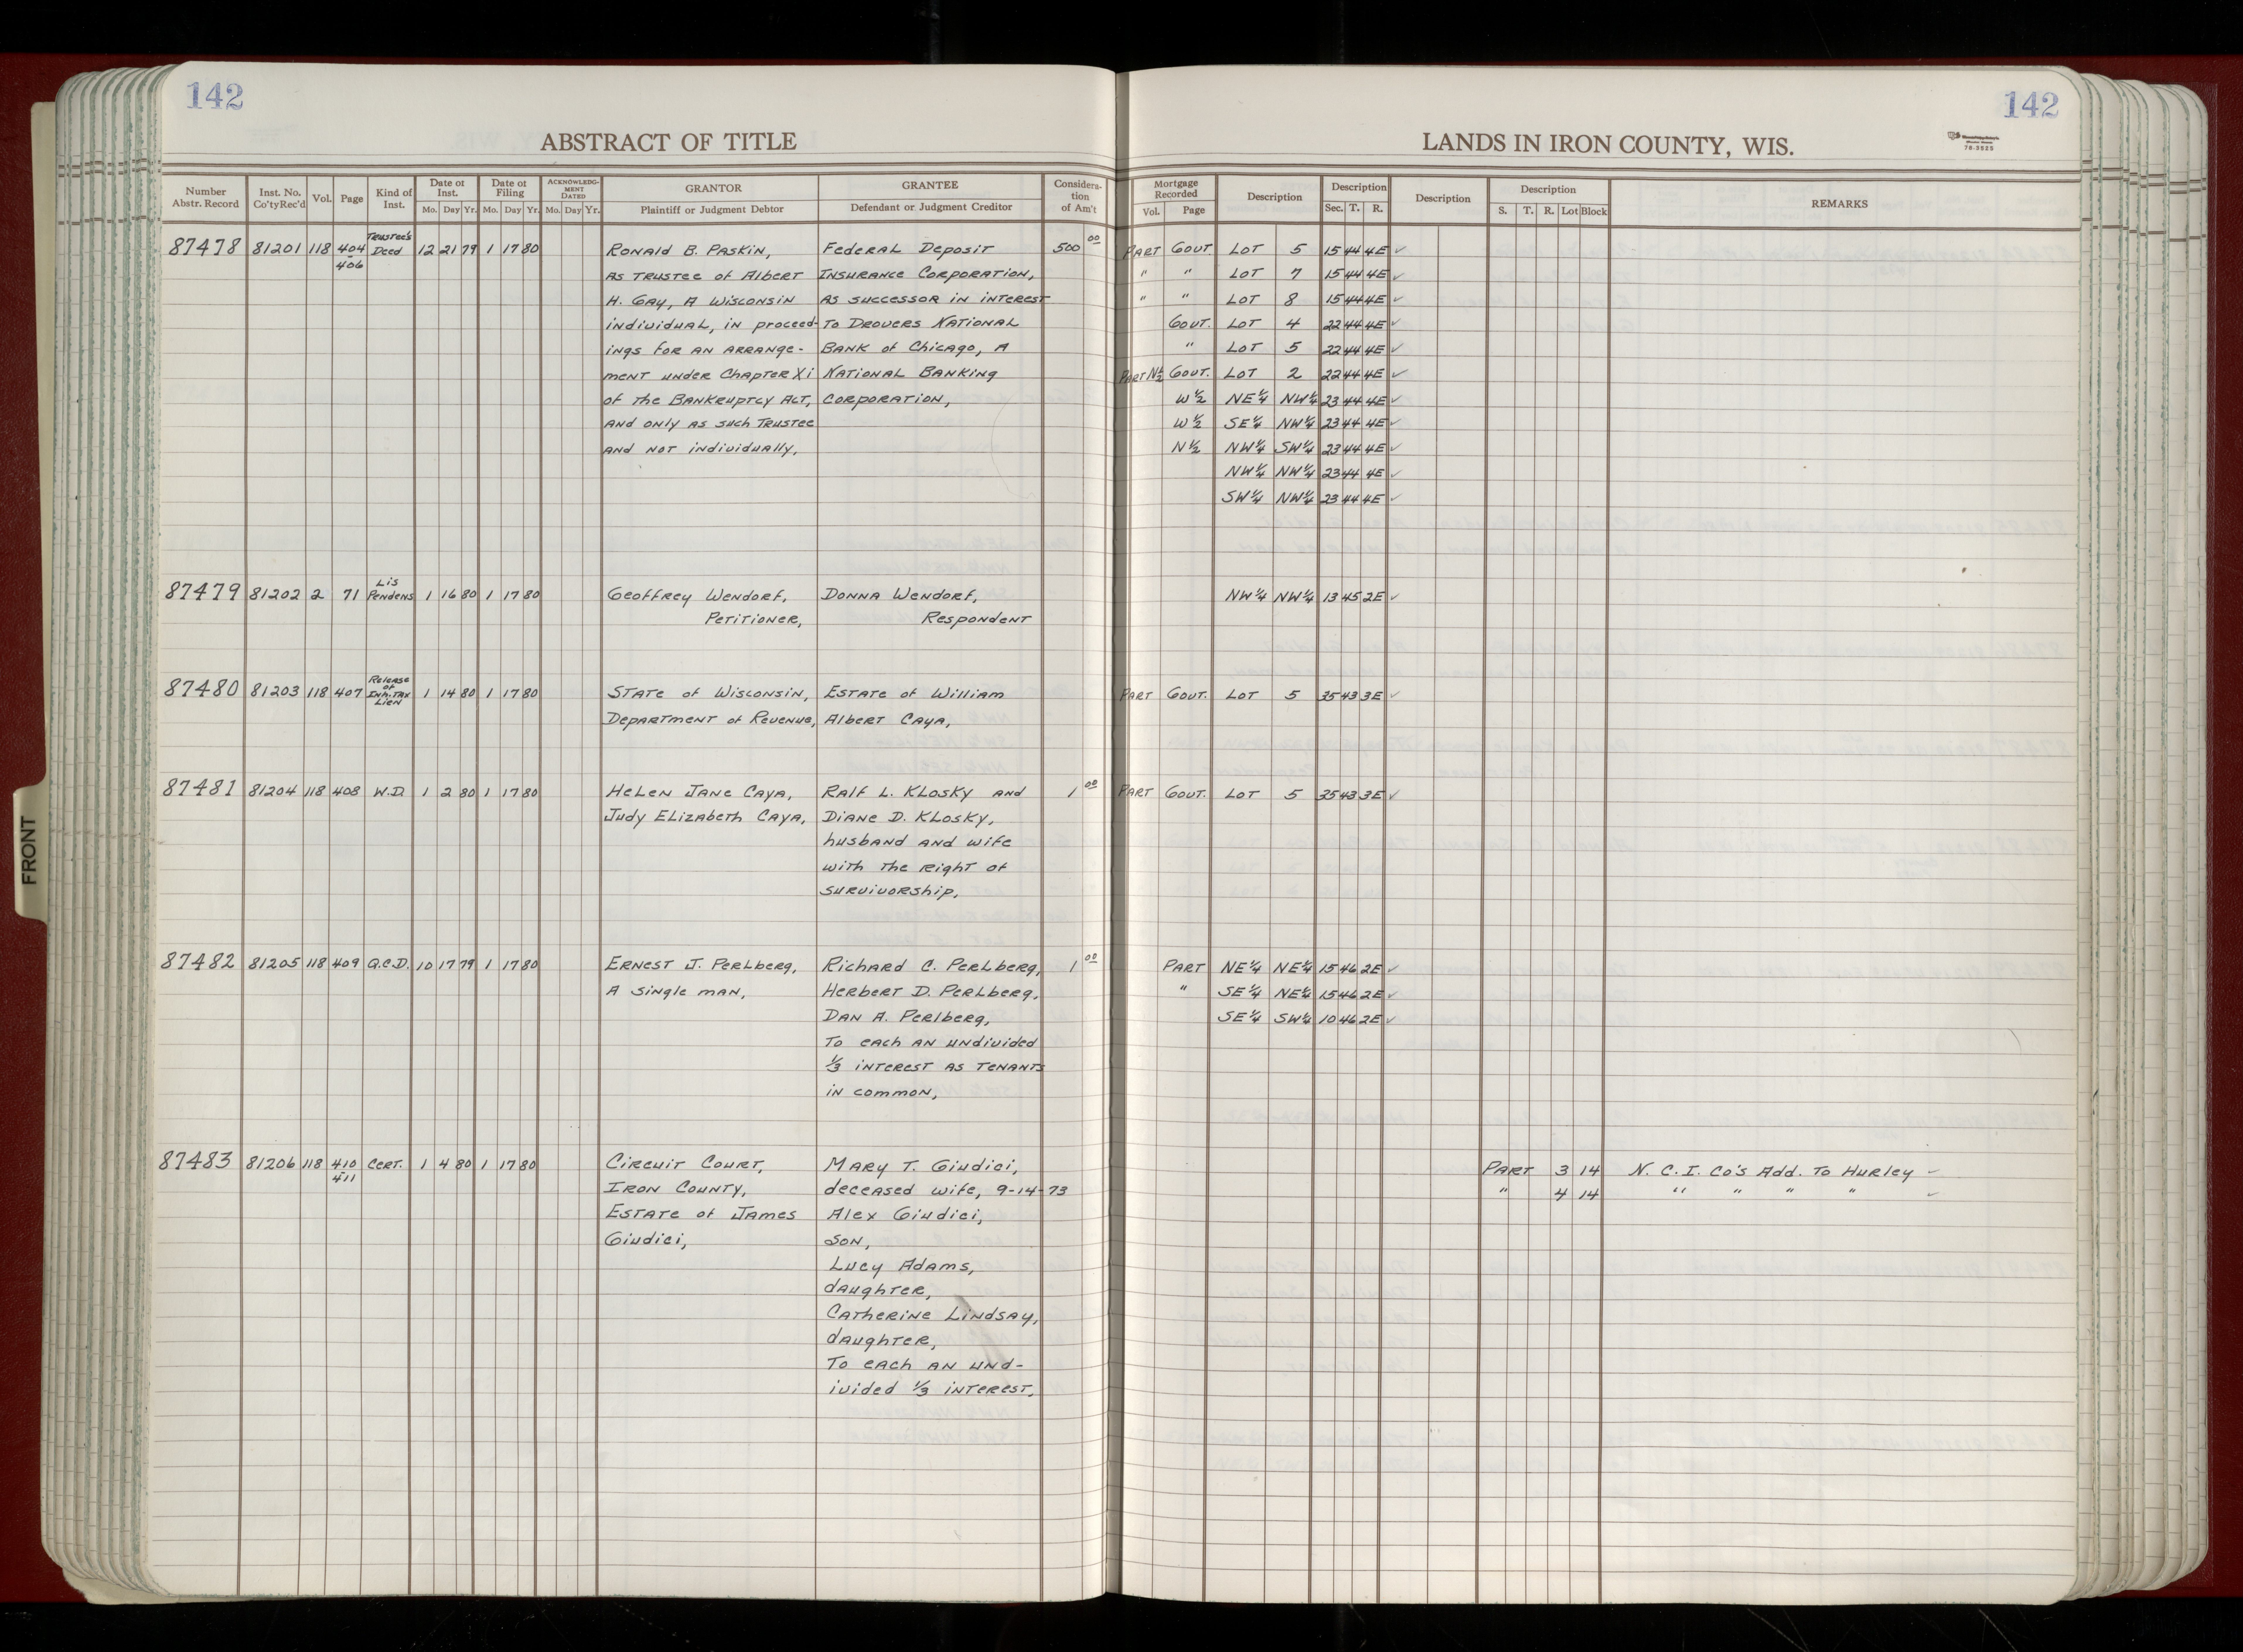 142
142
ABSTRACT OF TITLE
LANDS IN IRON COUNTY, WIS.
78-3525
Number Abstr. Record
Inst. No. Co'ty Rec'd
Vol.
Page
Kind of Inst.
Date of Inst.
Mo. Day Yr.
Date of Filing
Mo. Day Yr.
ACKNOWLEDGMENT DATED
Mo. Day Yr.
GRANTOR
Plaintiff or Judgment Debtor
GRANTEE
Defendant or Judgment Creditor
Consideration of Am't
Mortgage Recorded
Vol. Page
Description
Description
Sec. T. R.
Description
Description
S. T. R. Lot Block
REMARKS
87478 81201 118 404-406 Trustee's Deed 12 21 79 1 17 80 Ronald B. Paskin, Federal Deposit 500 00 Part Gout. Lot 5 15 44 4E ✓
as Trustee of Albert Insurance Corporation, " " Lot 7 15 44 4E ✓
H. Gay, a Wisconsin as successor in interest " " Lot 8 15 44 4E ✓
individual, in proceed- to Drovers National Gout. Lot 4 22 44 4E ✓
ings for an arrange- Bank of Chicago, a " Lot 5 22 44 4E ✓
ment under Chapter XI National Banking Part N½ Gout. Lot 2 22 44 4E ✓
of the Bankruptcy Act, Corporation, W½ NE¼ NW¼ 23 44 4E ✓
and only as such Trustee W½ SE¼ NW¼ 23 44 4E ✓
and not individually, N½ NW¼ SW¼ 23 44 4E ✓
NW¼ NW¼ 23 44 4E ✓
SW¼ NW¼ 23 44 4E ✓
87479 81202 2 71 Lis Pendens 1 16 80 1 17 80 Geoffrey Wendorf, Donna Wendorf, NW¼ NW¼ 13 45 2E ✓
Petitioner, Respondent
87480 81203 118 407 Release of Inh. Tax Lien 1 14 80 1 17 80 State of Wisconsin, Estate of William Part Gout. Lot 5 35 43 3E ✓
Department of Revenue, Albert Caya,
87481 81204 118 408 W.D. 1 2 80 1 17 80 Helen Jane Caya, Ralf L. Klosky and 1 00 Part Gout. Lot 5 35 43 3E ✓
Judy Elizabeth Caya, Diane D. Klosky,
husband and wife
with the right of
survivorship,
87482 81205 118 409 Q.C.D. 10 17 79 1 17 80 Ernest J. Perlberg, Richard C. Perlberg, 1 00 Part NE¼ NE¼ 15 46 2E ✓
a single man, Herbert D. Perlberg, " SE¼ NE¼ 15 46 2E ✓
Dan A. Perlberg, SE¼ SW¼ 10 46 2E ✓
To each an undivided
⅓ interest as tenants
in common,
87483 81206 118 410-411 Cert. 1 4 80 1 17 80 Circuit Court, Mary T. Giudici, Part 3 14 N. C. I. Co's Add. To Hurley ✓
Iron County, deceased wife, 9-14-73 " 4 14 " " " " ✓
Estate of James Alex Giudici,
Giudici, son,
Lucy Adams,
daughter,
Catherine Lindsay,
daughter,
To each an und-
ivided ⅓ interest,
FRONT